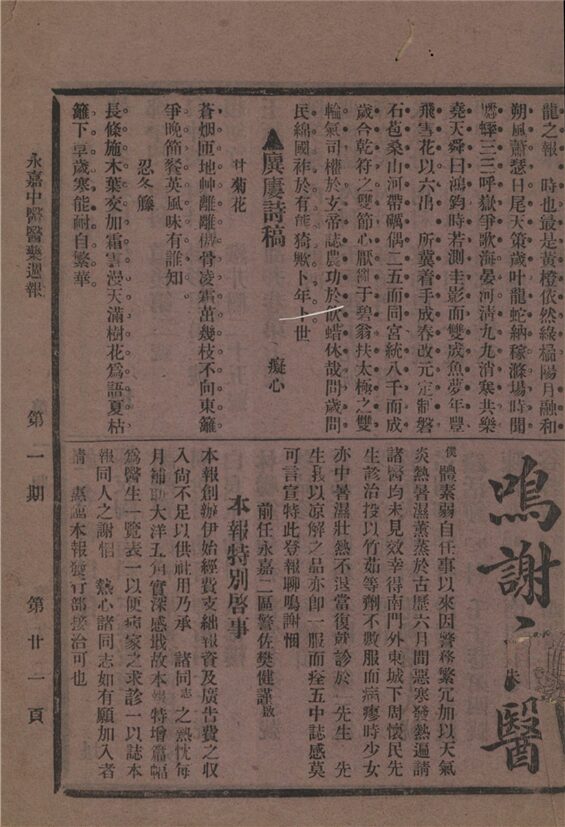 龍之報　時也最是黃橙依然綠橘陽月融和
朔風蕭瑟日尾天策歲叶龍蛇納稼滌場時聞
蟋蟀三三呼嶽爭歌海晏河清九九消寒共樂
堯天舜日鴻鈞時若測圭影而雙成魚夢年豐
飛雪花以六出　所冀着手成春改元定制磐
石苞桑山河帶礪偶二五而同宮統八千而成
歲合乾符之雙節心厭于碧翁扶太極之雙
輪氣司權於玄帝誌農功於飲蜡休哉問歲問
民綿國祚於有能猗歟卜年卜世
▲廣慶詩稿　癡心
甘菊花
蒼烟匝地艸離離傲骨凌霜茁幾枝不向東籬
爭晚節餐英風味有誰知
忍冬籐
長條施木葉交加霜雪漫天滿樹花爲語夏枯
籬下草歲寒能耐自繁華
鳴謝 醫
僕體素弱自任事以來因警務繁冗加以天氣
炎熱暑濕薰蒸於古歷六月間惡寒發熱遍請
諸醫均未見效幸得南門外東城下周懷民先
生診治投以竹茹等劑不數服而病瘳時少女
亦中暑濕壯熱不退當復就診於　先生　先
生我以凉解之品亦卽一服而痊五中誌感莫
可言宣特此登報聊鳴謝悃
前任永嘉二區警佐樊健謹啟
本報特別啓事
本報創辦伊始經費支絀報資及廣告費之收
入尙不足以供祉用乃承　諸同志之熱忱每
月補助大洋五角實深感戢故本報特增篇幅
爲醫生一覽表一以便病家之求診一以誌本
報同人之謝悃　熱心諸同志如有願加入者
請　惠臨本報發行部接洽可也
永嘉中醫醫藥週報
第一期
第廿一頁